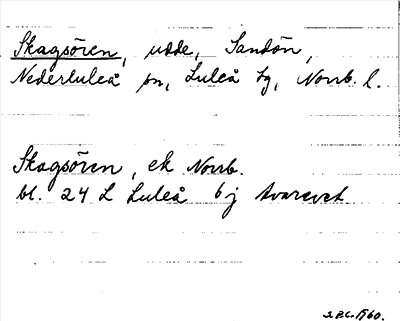 Skagsören, udde, Sandön,
Nederluleå sn, Luleå tg, Norrb. l.
Skagsören, ek Norrb.
bl. 24 L Luleå 6 j Avarevet
1960.